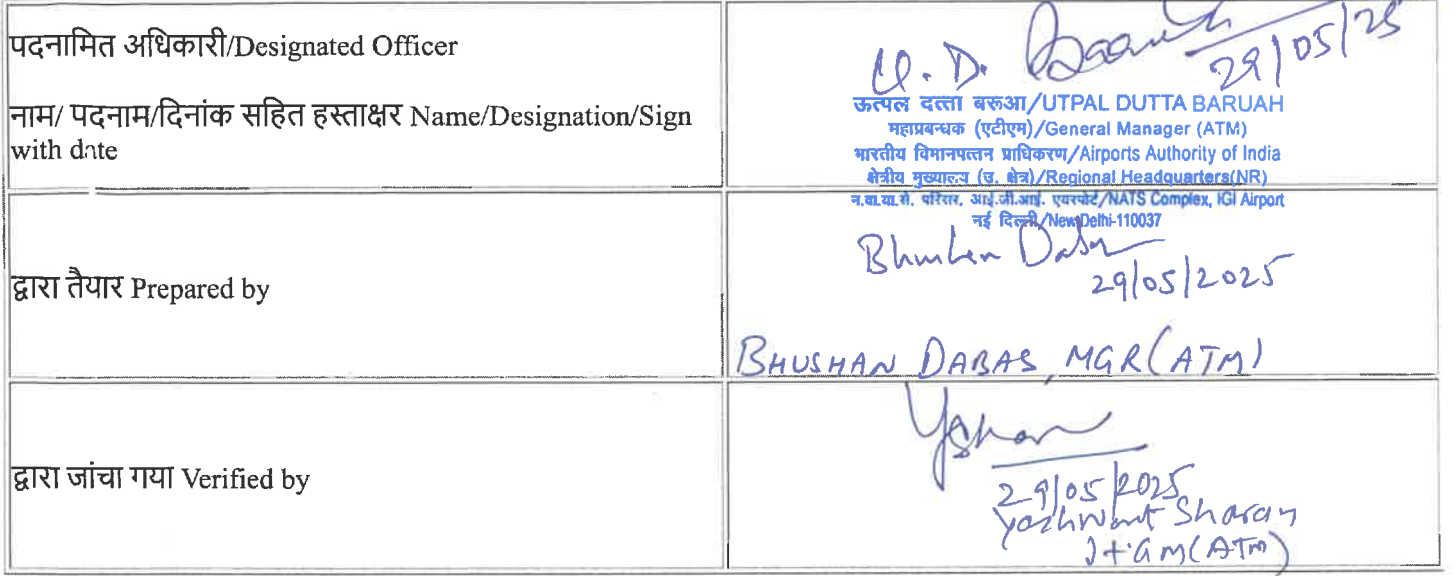 पदनामित अधिकारी/Designated Officer
नाम/ पदनाम/दिनांक सहित हस्ताक्षर Name/Designation/Sign
with date
U. D. Baruah
29/05/25
ऊत्पल दत्ता बरूआ/UTPAL DUTTA BARUAH
महाप्रबन्धक (एटीएम)/General Manager (ATM)
भारतीय विमानपत्तन प्राधिकरण/Airports Authority of India
क्षेत्रीय मुख्यालय (उ. क्षेत्र)/Regional Headquarters(NR)
न.वा.या.से. परिसर, आई.जी.आई. एयरपोर्ट/NATS Complex, IGI Airport
नई दिल्ली/New Delhi-110037
द्वारा तैयार Prepared by
Bhushan Dabas
29/05/2025
BHUSHAN DABAS, MGR(ATM)
द्वारा जांचा गया Verified by
YSharan
29/05/2025
Yashwant Sharan
Jt. GM(ATM)